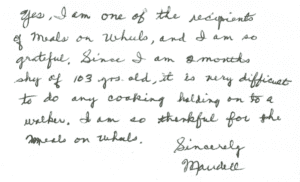 Yes, I am one of the recipients
of Meals on Wheels, and I am so
grateful. Since I am 2 months
shy of 103 yrs. old, it is very difficult
to do any cooking holding on to a
walker. I am so thankful for the
Meals on Wheels.
Sincerely
Maudell